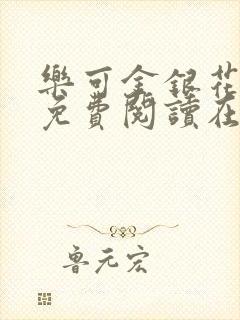 樂可金銀花
免費閱讀在
魯元宏